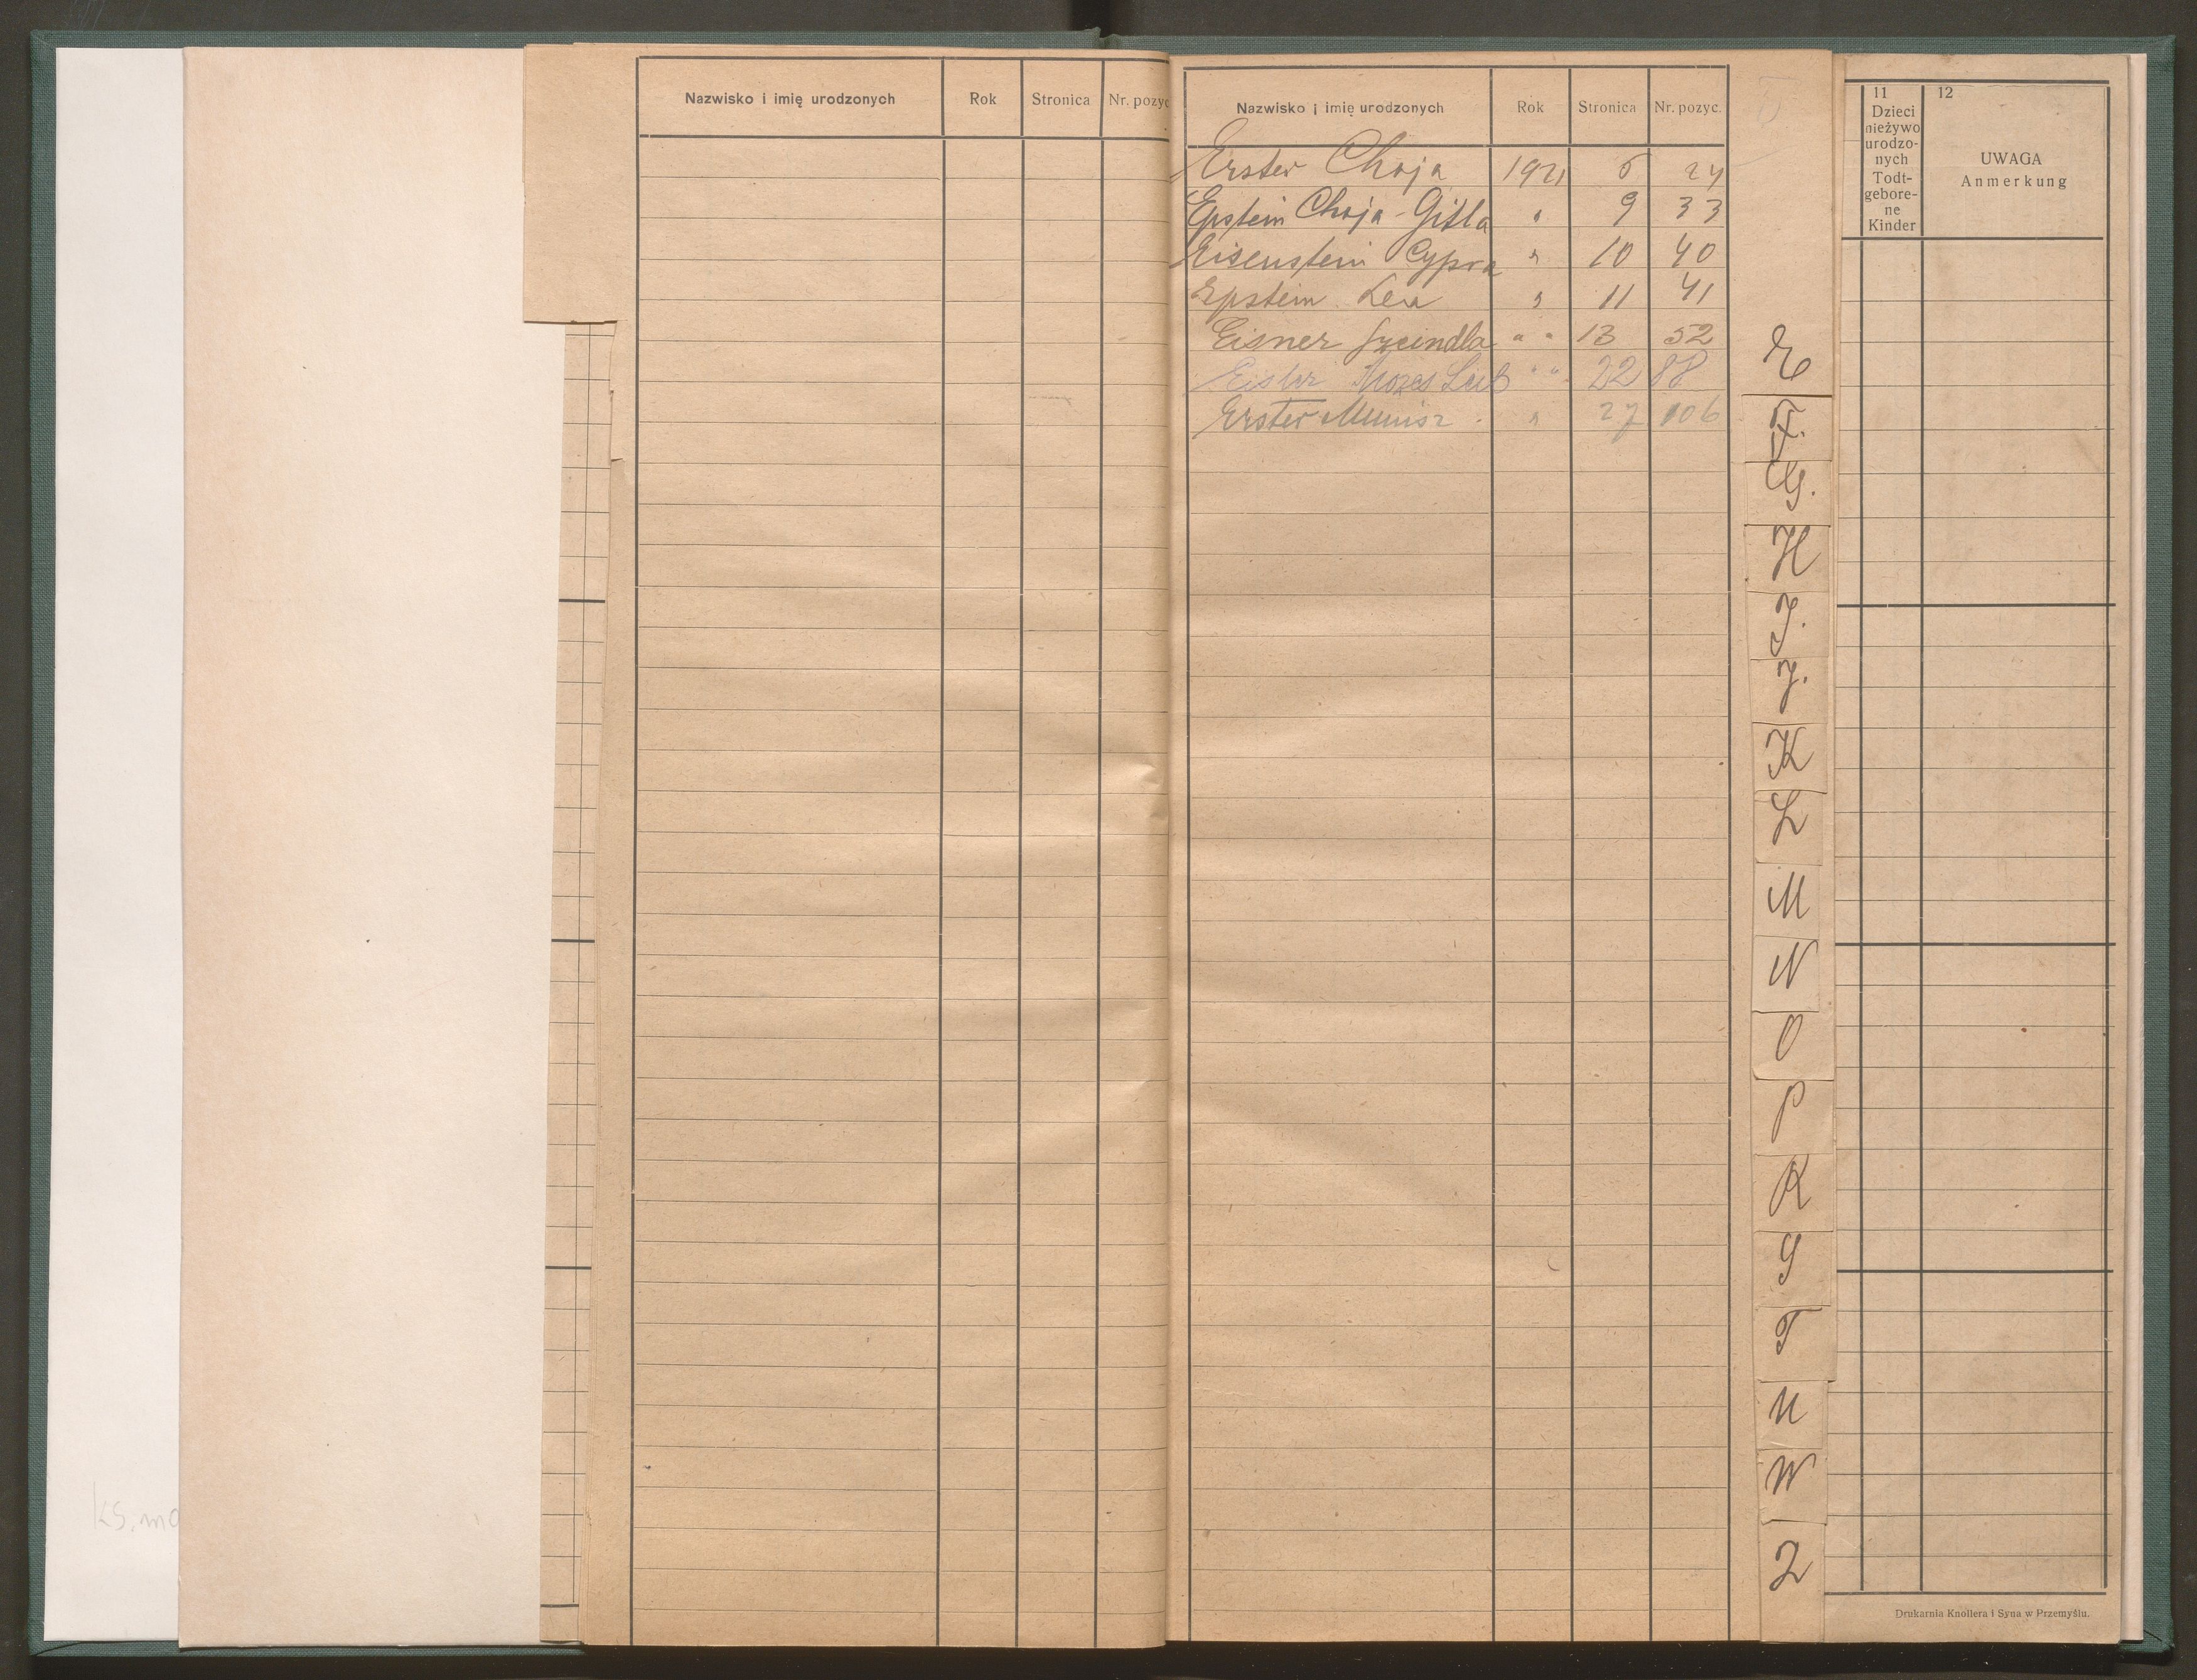 Nazwisko i imię urodzonych Rok Stronica Nr. pozyc
Nazwisko i imię urodzonych Rok Stronica Nr. pozyc.
Erster Chaja 1921 6 24
Epstein Chaja-Gitla " 9 33
Eisenstein Cypra " 10 40
Epstein Lea " 11 41
Eisner Szeindla " " 13 52
Eisler Mozes Leib " " 22 88
Erster Munisz " 27 106
E
F.
G.
H
I.
J.
K
L
M
N
O
P
R
S
T
U
W
Z
11
Dzieci
nieżywo
urodzo-
nych
Todt-
gebore-
ne
Kinder
12
UWAGA
Anmerkung
ks. mo
Drukarnia Knollera i Syna w Przemyślu.